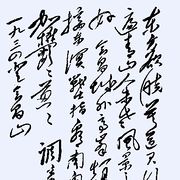 东方欲晓莫道君行
遍青山人未老风景
好会昌城外高峰颠
接东溟战士指看南
加郁郁葱葱调寄
一九三四登会昌山